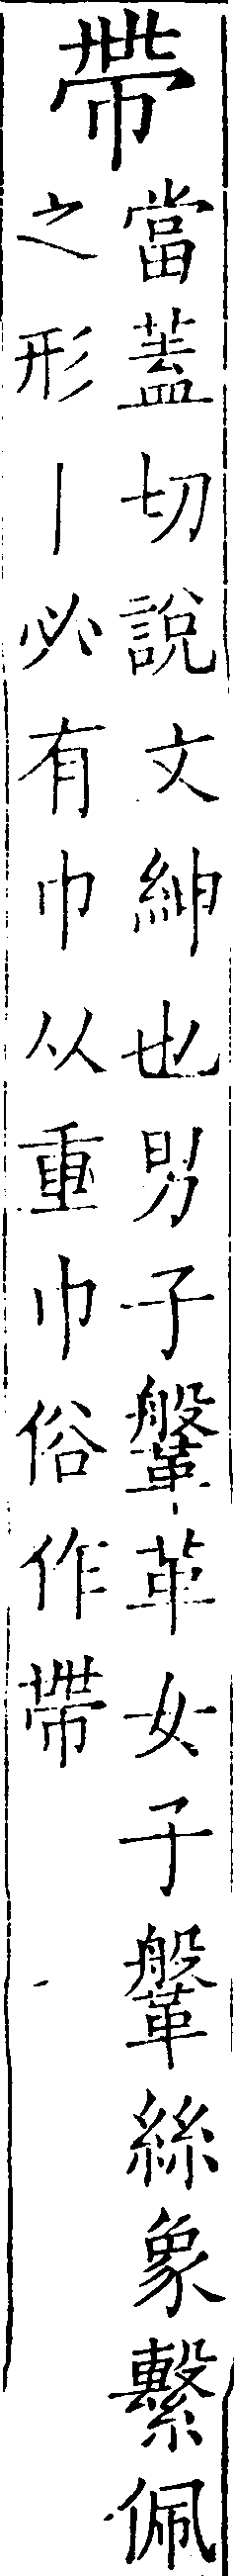 帶
當蓋切說文紳也男子鞶革女子鞶絲象繫佩
之形丨必有巾从重巾俗作帯